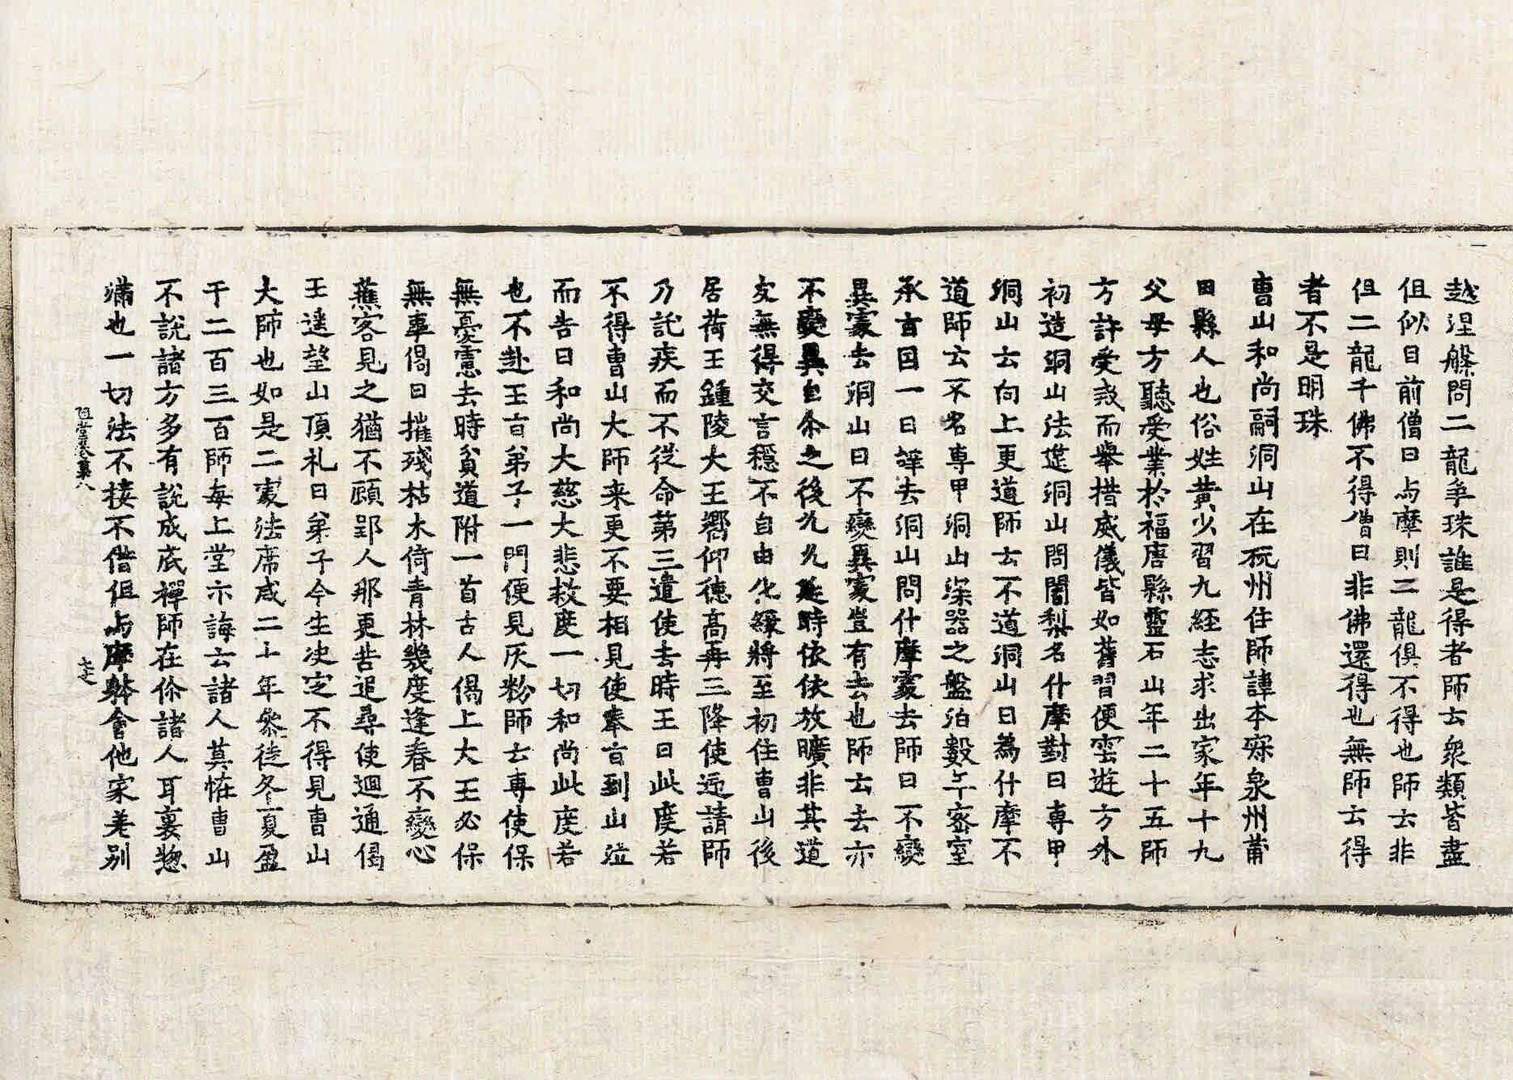 越涅槃問二龍爭珠誰是得者師云衆類皆盡
但似目前僧曰与摩則二龍俱不得也師云非
但二龍千佛不得僧曰非佛還得也無師云得
者不是明珠
曹山和尚嗣洞山在䄎州住師諱本㝛泉州莆
田縣人也俗姓黃少習九經志求出家年十九
父母方聽受業於福唐縣靈石山年二十五師
方許受戒而舉措威儀皆如舊習便雲遊方外
初造洞山法筵洞山問闍梨名什摩對曰專甲
洞山云向上更道師云不道洞山曰爲什摩不
道師云不名專甲洞山深器之盤泊數年密室
承言因一日辭去洞山問什摩處去師曰不變
異處去洞山曰不變異處豈有去也師云去亦
不變異自尒之後九九延時依依放曠非其道
友無得交言穩不自由化緣將至初住曹山後
居荷王鍾陵大王嚮仰德高再三降使迎請師
乃託疾而不從命第三遣使去時王曰此度若
不得曹山大師來更不要相見使奉旨到山泣
而告曰和尚大慈大悲救度一切和尚此度若
也不赴王旨弟子一門便見灰粉師云專使保
無憂慮去時貧道附一首古人偈上大王必保
無事偈曰摧殘枯木倚青林幾度逢春不變心
蕉客見之猶不顧郢人那更苦追尋使迴通偈
王遙望山頂礼曰弟子今生決定不得見曹山
大師也如是二處法席咸二十年參徒冬夏盈
于二百三百師每上堂示誨云諸人莫恠曹山
不說諸方多有說成底禪師在你諸人耳裏惣
滿也一切法不接不借但与摩體會他家差別
祖堂集卷第八